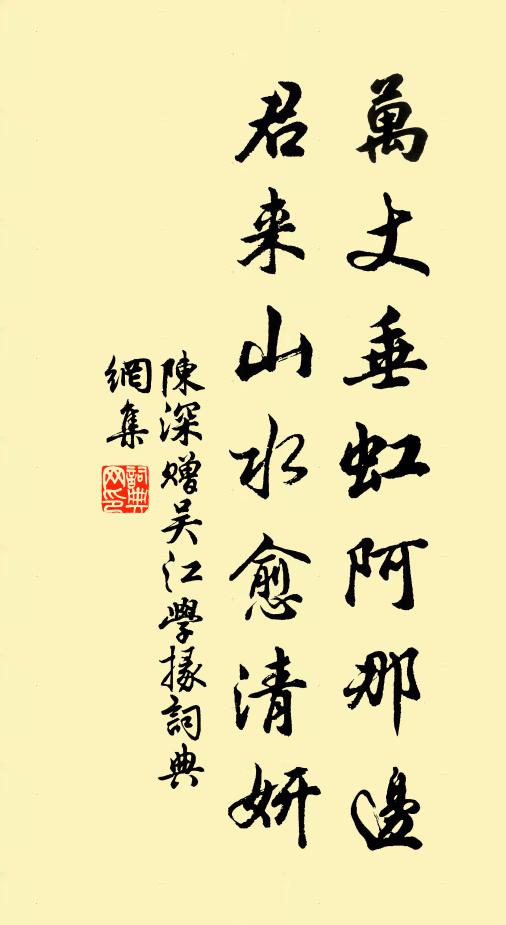 萬丈垂虹阿那邊
君来山水愈清妍
陳深贈吴江學掾詞典
網集
詞典
网印